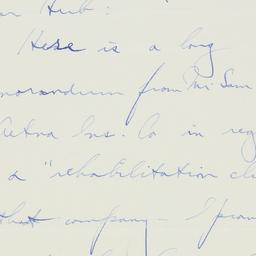 Hub:
Here is a long
from Mr Sam
Aetna Ins. Co in reg
a "rehabilitation cli
that company - I prom